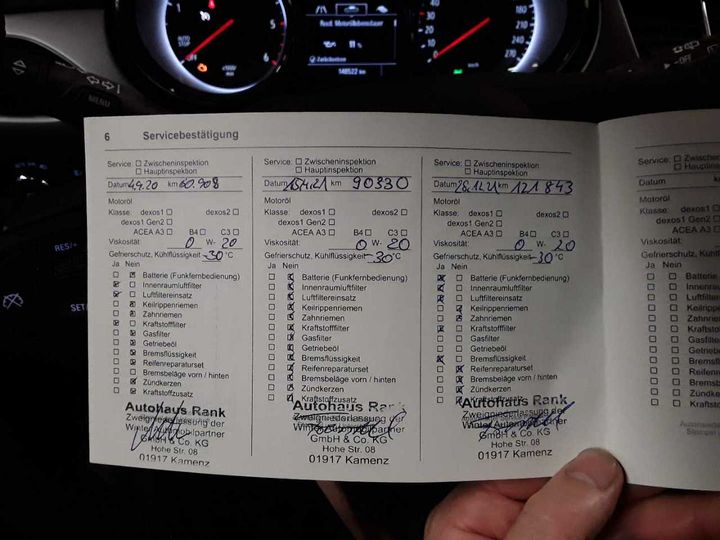 AUTO
STOP
OFF
5
6
Restl. Motoröllebensdauer
11 %
Zurücksetzen
148522 km
40
20
0
180
210
240
270
MENU
OFF
RES/+
SET/
6 Servicebestätigung
Service: Zwischeninspektion
Hauptinspektion
Datum 4.9.20 km 60.908
Motoröl
Klasse: dexos1 dexos2
dexos1 Gen2
ACEA A3 B4 C3
Viskosität: 0 W- 20
Gefrierschutz, Kühlflüssigkeit -30 °C
Ja Nein
Batterie (Funkfernbedienung)
Innenraumluftfilter
Luftfiltereinsatz
Keilrippenriemen
Zahnriemen
Kraftstofffilter
Gasfilter
Getriebeöl
Bremsflüssigkeit
Reifenreparaturset
Bremsbeläge vorn / hinten
Zündkerzen
Kraftstoffzusatz
Autohaus Rank
Zweigniederlassung der
Winter Automobilpartner
GmbH & Co. KG
Hohe Str. 08
01917 Kamenz
Service: Zwischeninspektion
Hauptinspektion
Datum 15.4.21 km 90330
Motoröl
Klasse: dexos1 dexos2
dexos1 Gen2
ACEA A3 B4 C3
Viskosität: 0 W- 20
Gefrierschutz, Kühlflüssigkeit -30 °C
Ja Nein
Batterie (Funkfernbedienung)
Innenraumluftfilter
Luftfiltereinsatz
Keilrippenriemen
Zahnriemen
Kraftstofffilter
Gasfilter
Getriebeöl
Bremsflüssigkeit
Reifenreparaturset
Bremsbeläge vorn / hinten
Zündkerzen
Kraftstoffzusatz
Autohaus Rank
Zweigniederlassung der
Winter Automobilpartner
GmbH & Co. KG
Hohe Str. 08
01917 Kamenz
Service: Zwischeninspektion
Hauptinspektion
Datum 28.12.21 km 121 843
Motoröl
Klasse: dexos1 dexos2
dexos1 Gen2
ACEA A3 B4 C3
Viskosität: 0 W- 20
Gefrierschutz, Kühlflüssigkeit -30 °C
Ja Nein
Batterie (Funkfernbedienung)
Innenraumluftfilter
Luftfiltereinsatz
Keilrippenriemen
Zahnriemen
Kraftstofffilter
Gasfilter
Getriebeöl
Bremsflüssigkeit
Reifenreparaturset
Bremsbeläge vorn / hinten
Zündkerzen
Kraftstoffzusatz
Autohaus Rank
Zweigniederlassung der
Winter Automobilpartner
GmbH & Co. KG
Hohe Str. 08
01917 Kamenz
Service: Zwisch
Haupti
Datum km
Motoröl
Klasse: dexos1
dexos1 Gen2
ACEA A3
Viskosität:
Gefrierschutz, Kühlflüs
Ja Nein
Batterie (Fu
Innenrauml
Luftfilterein
Keilrippen
Zahnrieme
Kraftstofff
Gasfilter
Getriebeö
Bremsflüs
Reifenrep
Bremsbe
Zündkerz
Kraftstof